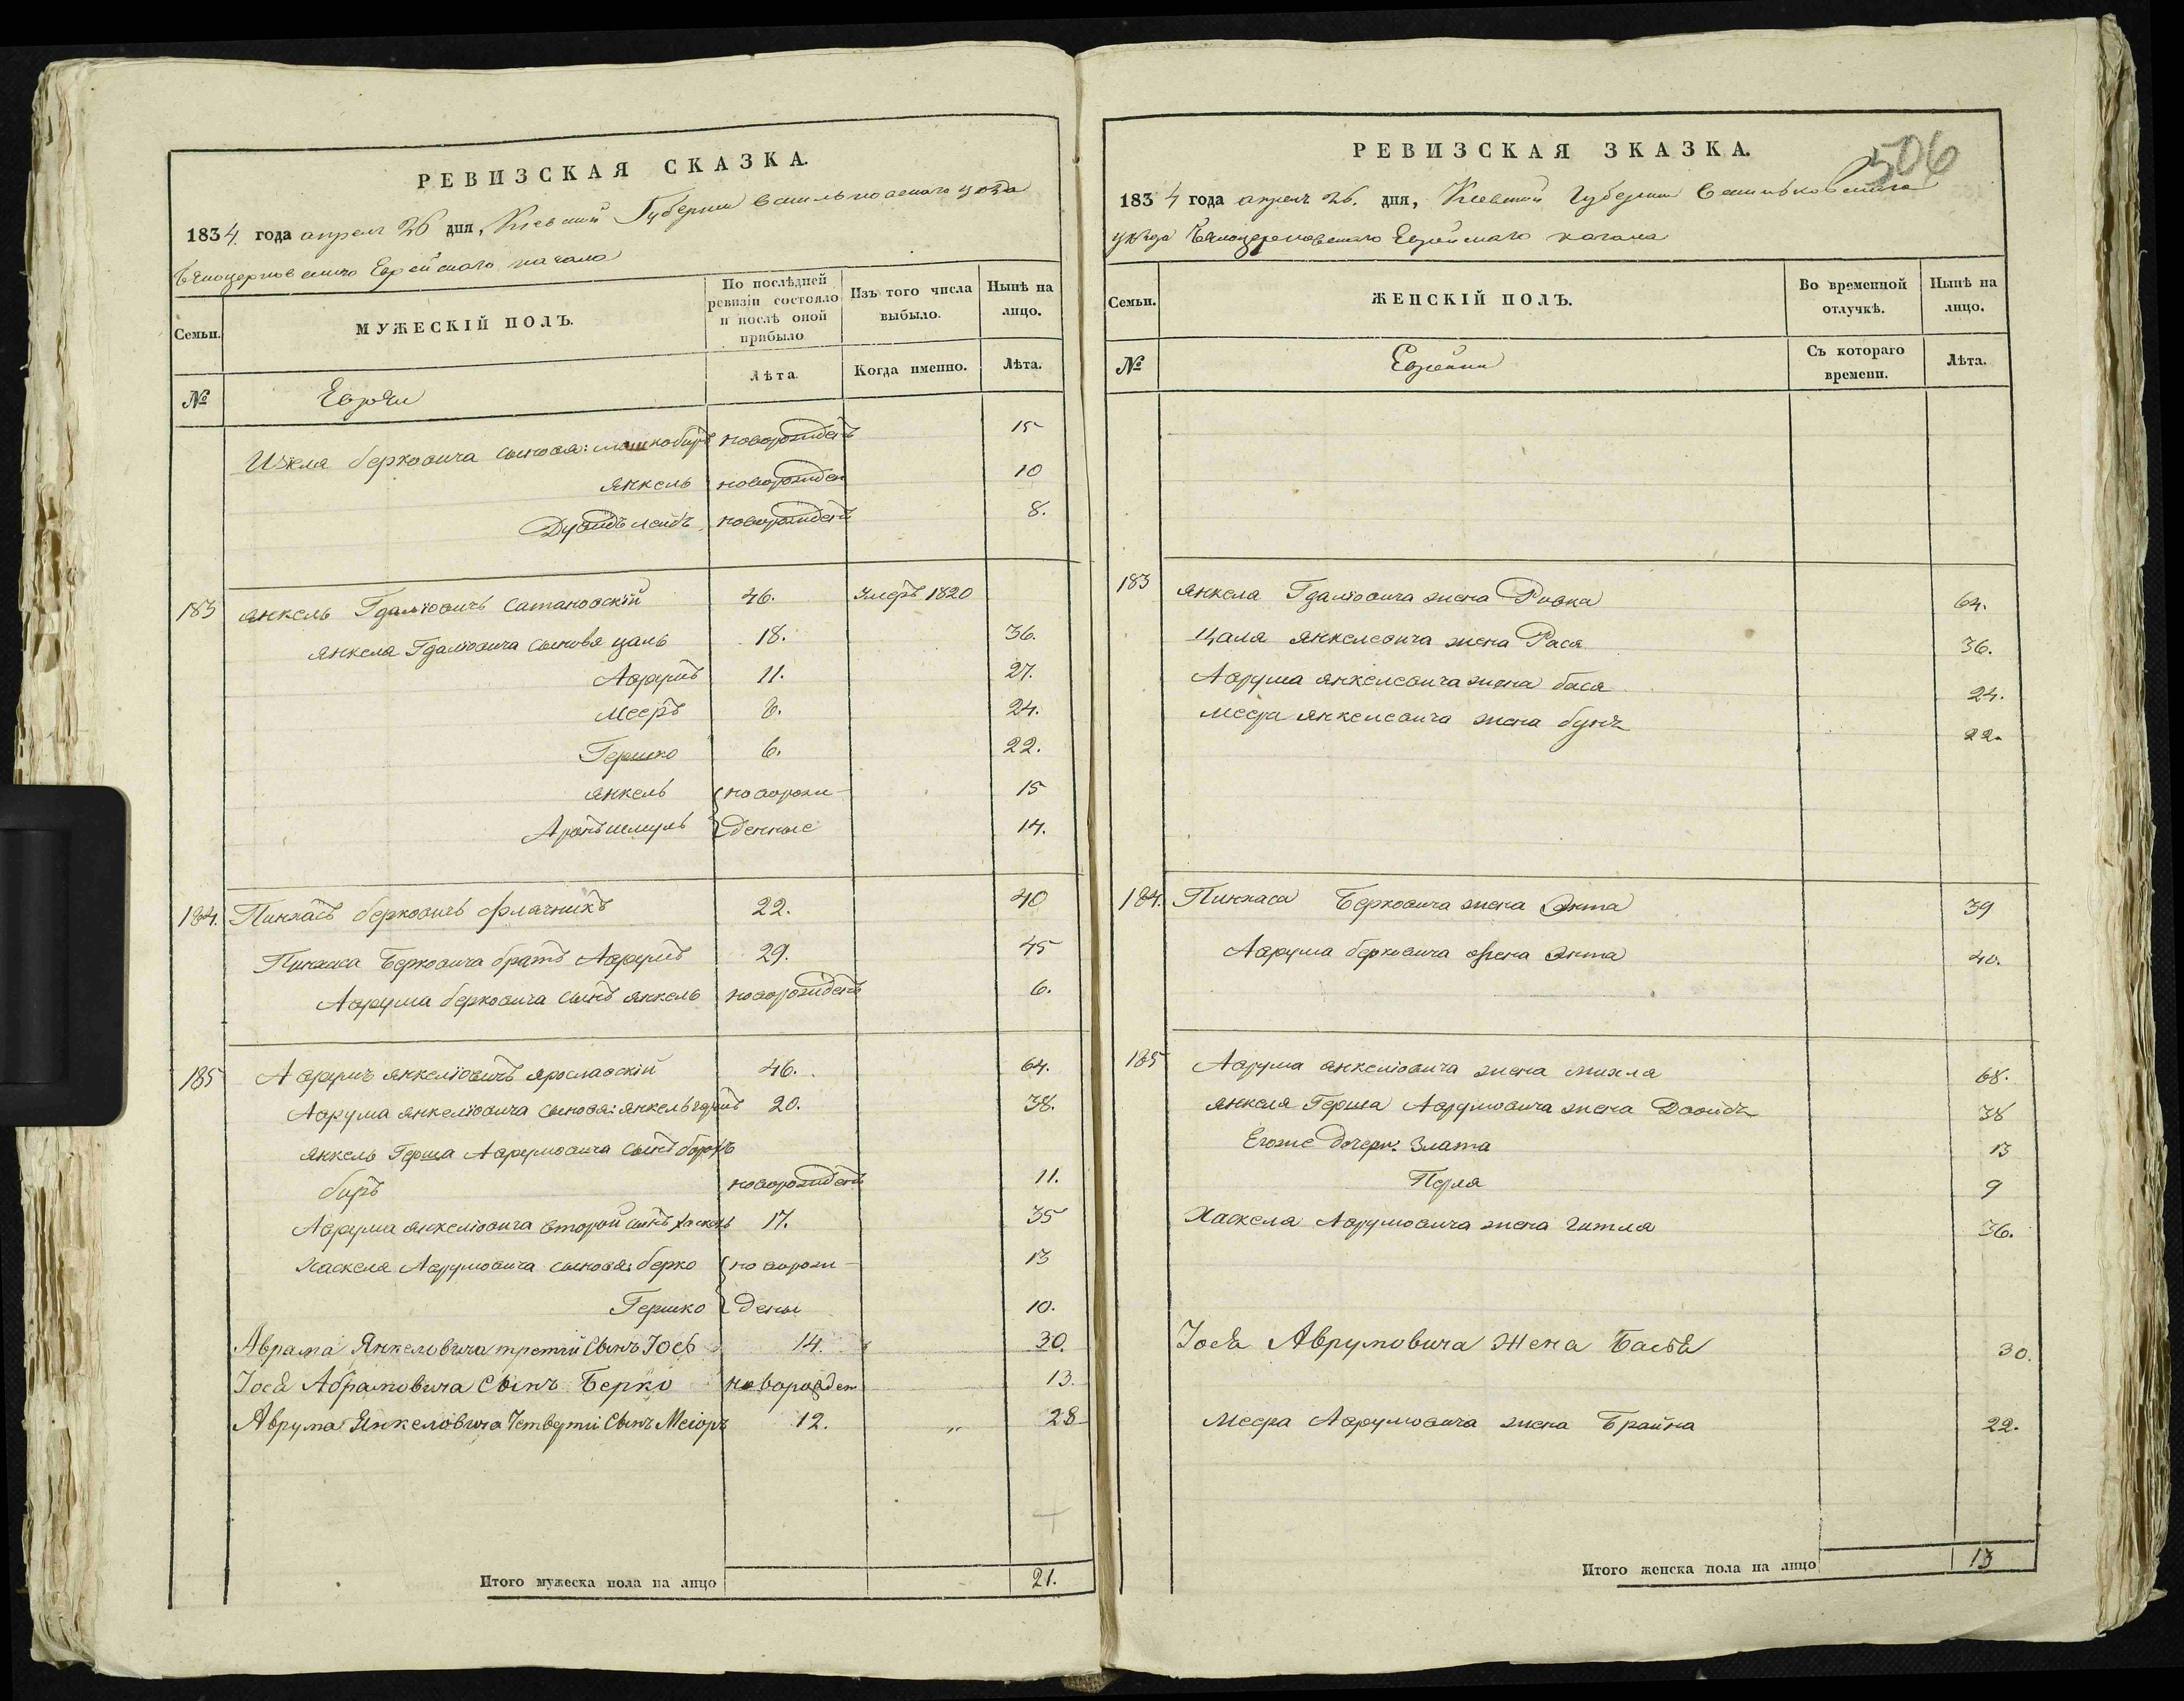 РЕВИЗСКАЯ СКАЗКА.
1834. года апреля 26 дня, Киевской Губернии Васильковского уезда
Бѣлоцерковскаго Еврейскаго кагала
Семьи.
МУЖЕСКІЙ ПОЛЪ.
По послѣдней ревизіи состояло и послѣ оной прибыло
Изъ того числа выбыло.
Нынѣ на лицо.
№
Евреи
Лѣта.
Когда именно.
Лѣта.
Ицкла Берковича сыновья: новорожденъ 15
Янкель новорожден 10
Дувидъ Лейбъ новорожденъ 8.
183 Янкель Гдаліовичъ Сатановскій 46. Умеръ 1820
Янкеля Гдаліовича сыновья Цаль 18. 36.
Аврумъ 11. 27.
Мееръ 8. 24.
Гершко 6. 22.
Янкель новорож- 15
Аронъ Шмуль денные 14.
184. Пинхасъ Берковичъ Флачникъ 22. 40
Пинхаса Берковича братъ Аврумъ 29. 45
Аврума Берковича сынъ Янкель новорожденъ 6.
185 Аврумъ Янкеліовичъ Ярославскій 46. 64.
Аврума Янкеліовича сыновья: Янкель Гершъ 20. 38.
Янкель Герша Аврумовича сынъ Борохъ
Беръ новорожденъ 11.
Аврума Янкеліовича второй сынъ Хаскель 17. 35
Хаскеля Аврумовича сыновья: Берко новорож- 13
Гершко дены 10.
Аврама Янкеловича третій Сынъ Іось 14. 30.
Іося Абрамовича Сынъ Берко новорожден 13.
Аврума Янкеловича Четвертій Сынъ Меіоръ 12. „ 28
Итого мужеска пола на лицо 21.
506
РЕВИЗСКАЯ ЗКАЗКА.
1834 года апреля 26. дня, Киевской Губернии Васильковского
уѣзда Бѣлоцерковскаго Еврейскаго кагала
Семьи.
ЖЕНСКІЙ ПОЛЪ.
Во временной отлучкѣ.
Нынѣ на лицо.
№
Еврейки
Съ котораго времени.
Лѣта.
183 Янкеля Гдаліовича жена Ривка 64.
Цаля Янкелевича жена Рася 36.
Аврума Янкелевича жена Бася 24.
Меера Янкелевича жена Буня 22.
184. Пинхаса Берковича жена Энта 39
Аврума Берковича жена Энта 40.
185 Аврума Янкеліовича жена Михля 68.
Янкеля Герша Аврумовича жена Двойра 38
Егоже дочери: Злата 13
Перля 9
Хаскеля Аврумовича жена Гитля 36.
Іося Аврумовича Жена Бася 30.
Меера Аврумовича жена Брайна 22.
Итого женска пола на лицо 13